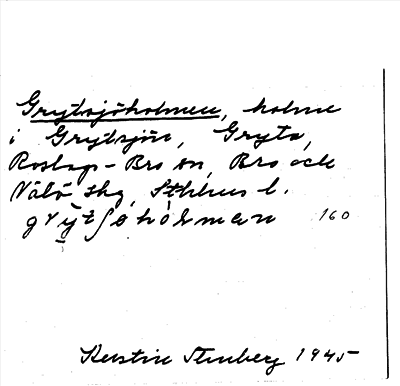 Grytsjöholmen, holme
i Grytsjön, Gryta,
Roslags-Bro sn, Bro och
Väbö skg, Sthlms l.
grỵ̄tʃøhòlmen 160
Kerstin Stenberg 1945